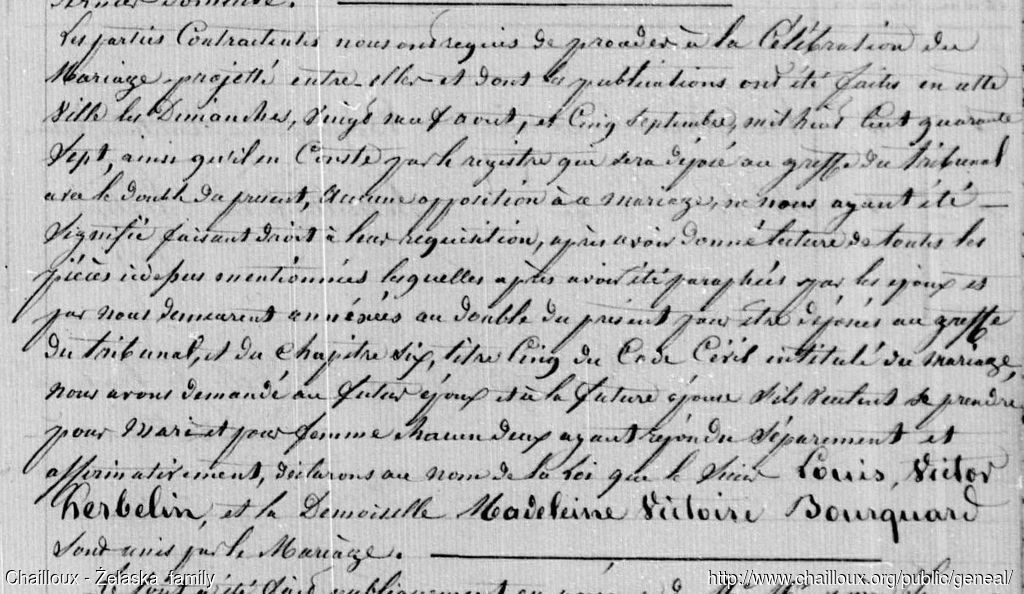 dernier domicile.
Les parties Contractentes nous ont requis de procéder à la Célébration du
Mariage projetté entre elles et dont les publications ont été faites en cette
Ville les Dimanches, Vingt neuf aout, et Cinq Septembre, mil huit Cent quarante
Sept, ainsi qu'il en Conste par le registre qui sera déposé au greffe du tribunal
avec le double du présent, Aucune opposition à ce mariage, ne nous ayant été
Signifié faisant droit à leur requisition, après avoir donné lecture de toutes les
pièces ci dessus mentionnées lesquelles après avoir été paraphées par les époux et
par nous demeurent annéxées au double du présent pour être déposés au greffe
du tribunal, et du Chapitre Six, titre Cinq du Code Civil intitulé du mariage,
nous avons demandé au futur époux et à la future épouse S'ils veulent se prendre
pour Mari et pour femme chacun deux ayant répondu Séparement et
affirmativement, déclarons au nom de la Loi que le Sieur Louis, Victor
herbelin, et la Demoiselle Madeleine Victoire Bourquard
Sont unis par le Mariage.
Le tout a été fait publiquement en
Chailloux - Żelaska family
http://www.chailloux.org/public/geneal/